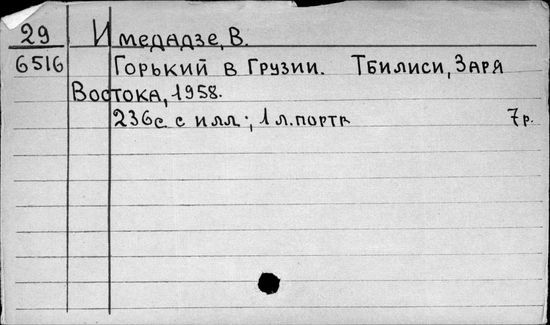 29 Имедадзе, В.
6516 Горький в Грузии. Тбилиси, Заря
Востока, 1958.
236с. с илл.; 1 л. портр. 7р.